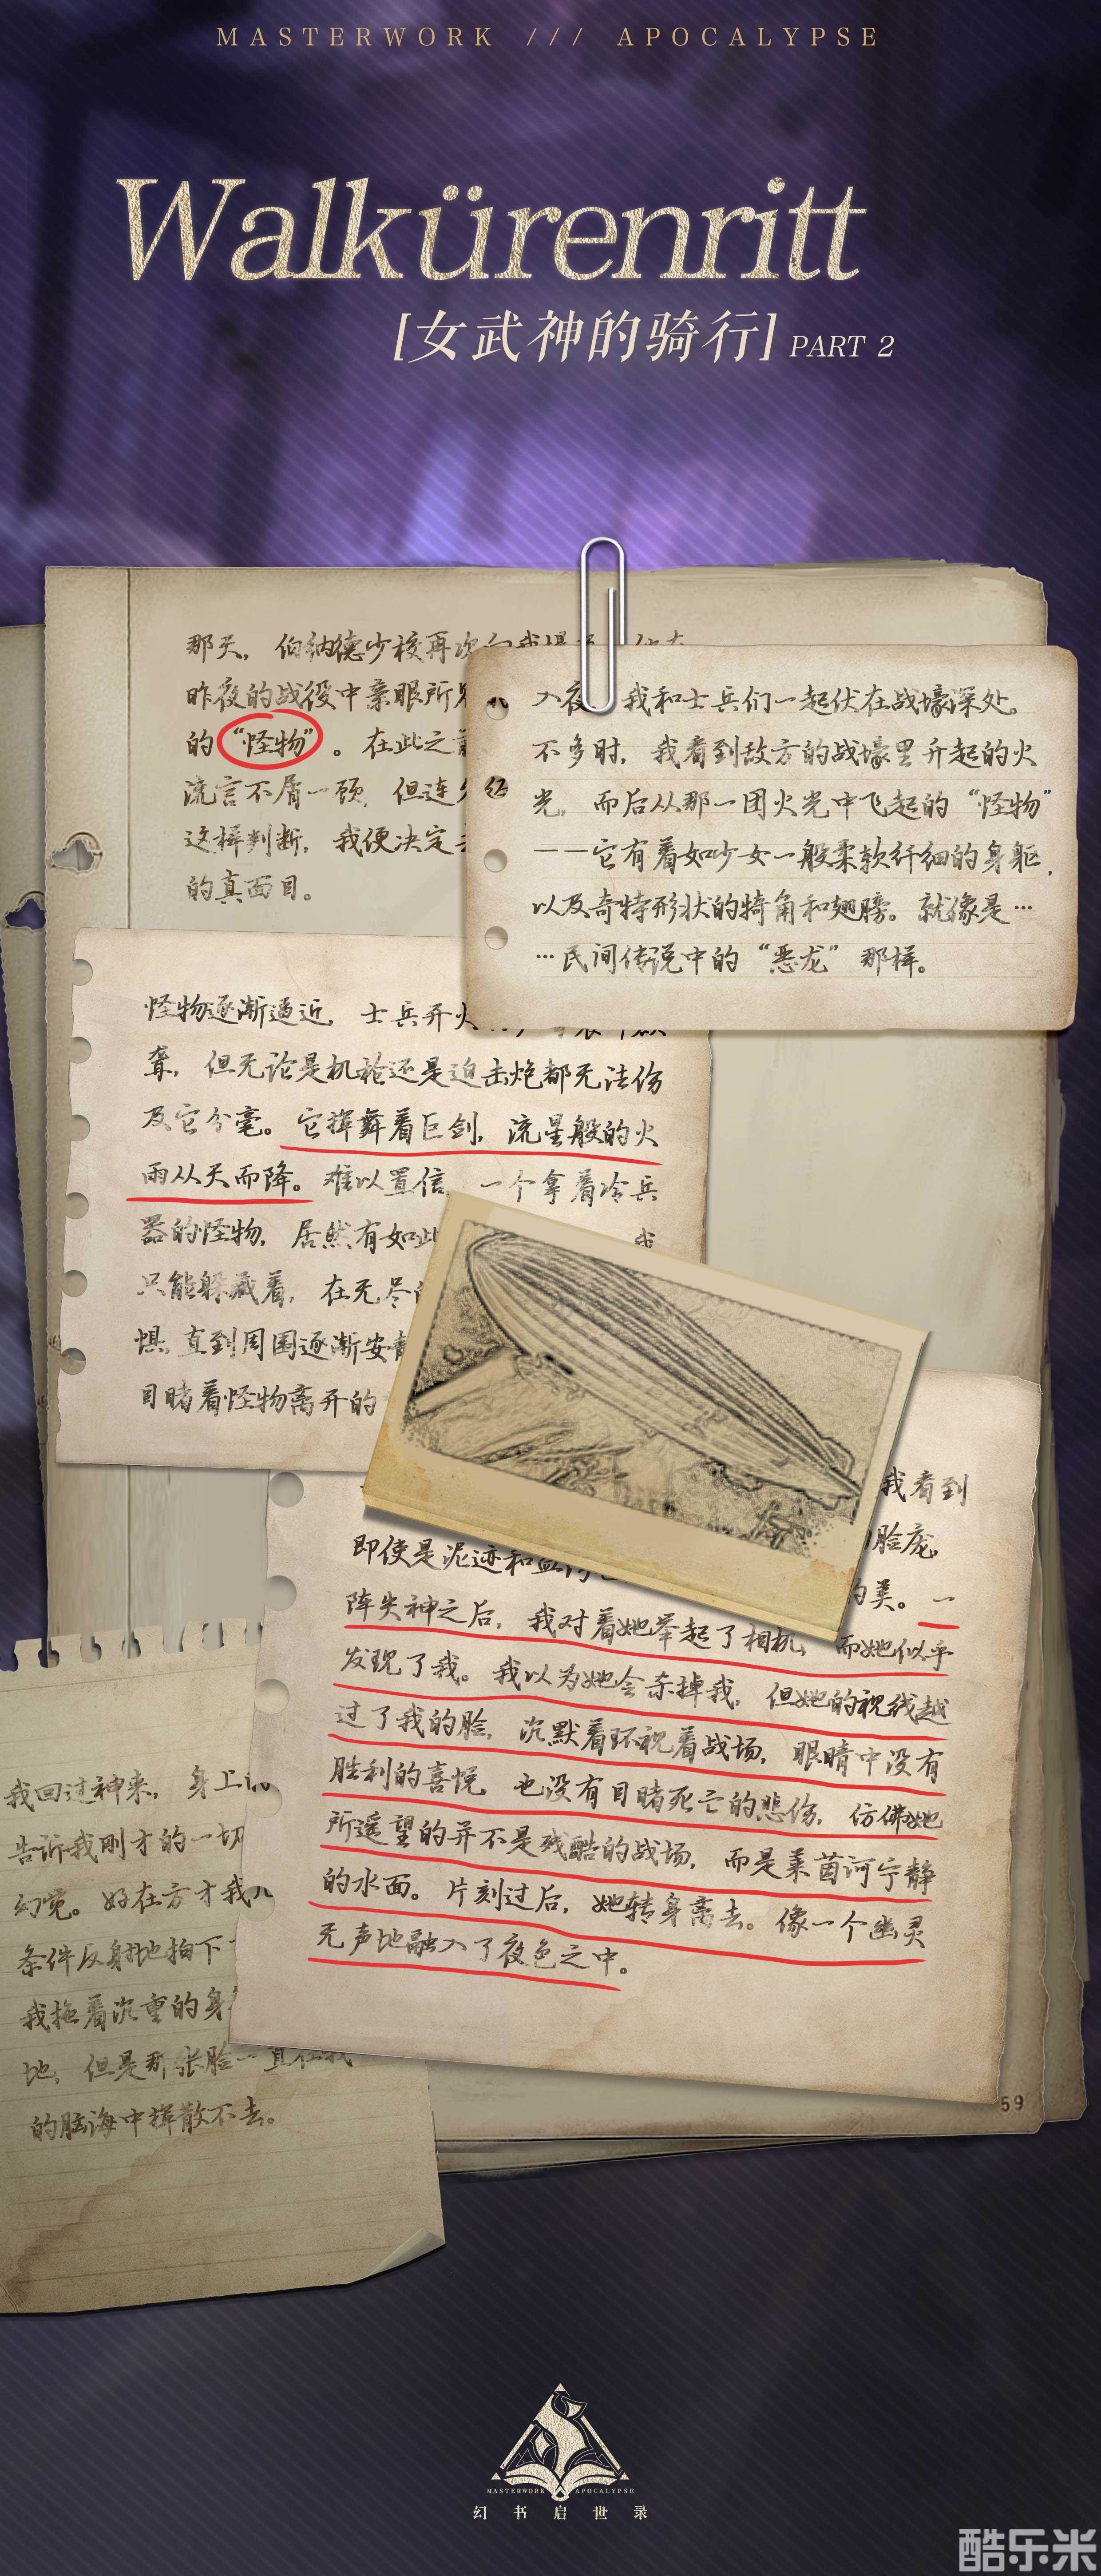 MASTERWORK /// APOCALYPSE
Walkürenritt
[女武神的骑行] PART 2
那天，伯纳德少校再次向我
昨夜的战役中亲眼所见
的“怪物”。在此之前
流言不屑一顾，但连
这样判断，我便决定
的真面目。
入夜，我和士兵们一起伏在战壕深处。
不多时，我看到敌方的战壕里升起的火
光，而后从那一团火光中飞起的“怪物”
——它有着如少女一般柔软纤细的身躯，
以及奇特形状的犄角和翅膀。就像是…
…民间传说中的“恶龙”那样。
怪物逐渐逼近，士兵开火
聋，但无论是机枪还是迫击炮都无法伤
及它分毫。它挥舞着巨剑，流星般的火
雨从天而降。难以置信，一个拿着冷兵
器的怪物，居然有如此 我
只能躲藏着，在无尽
惧，直到周围逐渐安静
目睹着怪物离开的
我看到
脸庞，
即使是泥迹和血污
的美。一
阵失神之后，我对着她举起了相机，而她似乎
发现了我。我以为她会杀掉我，但她的视线越
过了我的脸，沉默着环视着战场，眼睛中没有
胜利的喜悦，也没有目睹死亡的悲伤，仿佛她
所遥望的并不是残酷的战场，而是莱茵河宁静
的水面。片刻过后，她转身离去。像一个幽灵
无声地融入了夜色之中。
我回过神来，身上
告诉我刚才的一切
幻觉。好在方才我
条件反射地拍下
我拖着沉重的身
地，但是那张脸一直在我
的脑海中挥散不去。
59
MASTERWORK APOCALYPSE
幻书启世录
酷乐米